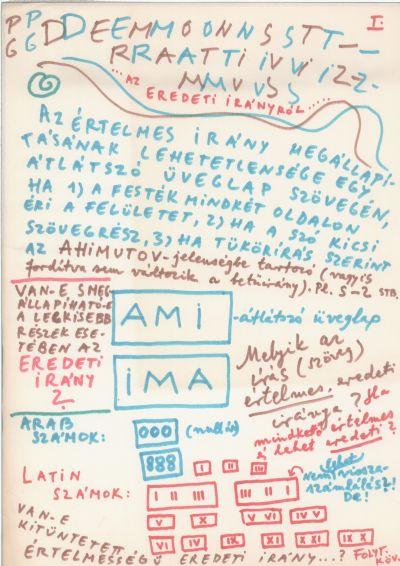 I.
PPGG DDEEMMOONNSSTT--
RRAATTIIVVIIZZ-
MMUUSS
...AZ
EREDETI IRÁNYRÓL.....
AZ ÉRTELMES IRÁNY MEGÁLLAPÍ-
TÁSÁNAK LEHETETLENSÉGE EGY
ÁTLÁTSZÓ ÜVEGLAP SZÖVEGÉN,
HA 1) A FESTÉK MINDKÉT OLDALON
ÉRI A FELÜLETET, 2) HA A SZÓ KICSI
SZÖVEGRÉSZ, 3) HA TÜKÖRÍRÁS SZERINT
AZ AHIMUTOV-jelenségbe tartozó (vagyis
fordítva sem változik a betűirány). Pl. S-2 STB.
VAN-E S MEG-
ÁLLAPÍTHATÓ-E
A LEGKISEBB
RÉSZEK ESE-
TÉBEN AZ
EREDETI
IRÁNY
?
AMI
-átlátszó üveglap
IMA
Melyik az
írás (szöveg)
értelmes, eredeti
iránya? Ha
mindkettő értelmes
lehet eredeti?
ARAB
SZÁMOK:
000 (nullás)
888
I II III
LATIN
SZÁMOK:
I II III III II I
lehet
Nem vissza-
számlálás?!
De!
V X V VI IV V
VI IV XI IX IX X
VAN-E
KITÜNTETETT
ÉRTELMESSÉGŰ EREDETI IRÁNY...? FOLYT.
KÖV.